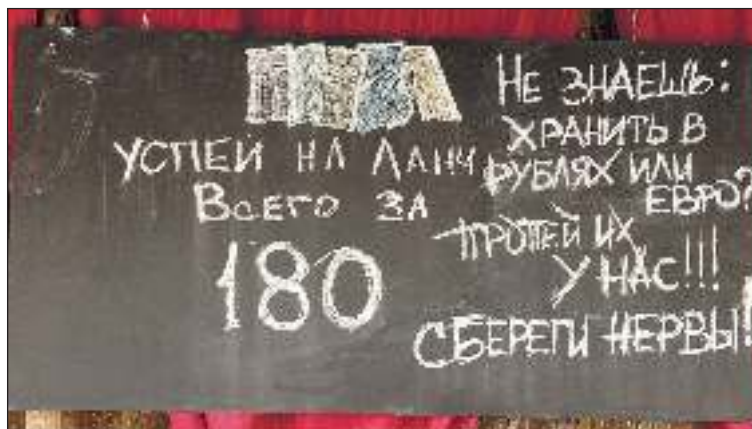 УСПЕЙ НА ЛАНЧ
ВСЕГО ЗА
180
НЕ ЗНАЕШЬ:
ХРАНИТЬ В
РУБЛЯХ ИЛИ
ЕВРО?
ПРОПЕЙ ИХ
У НАС!!!
СБЕРЕГИ НЕРВЫ!